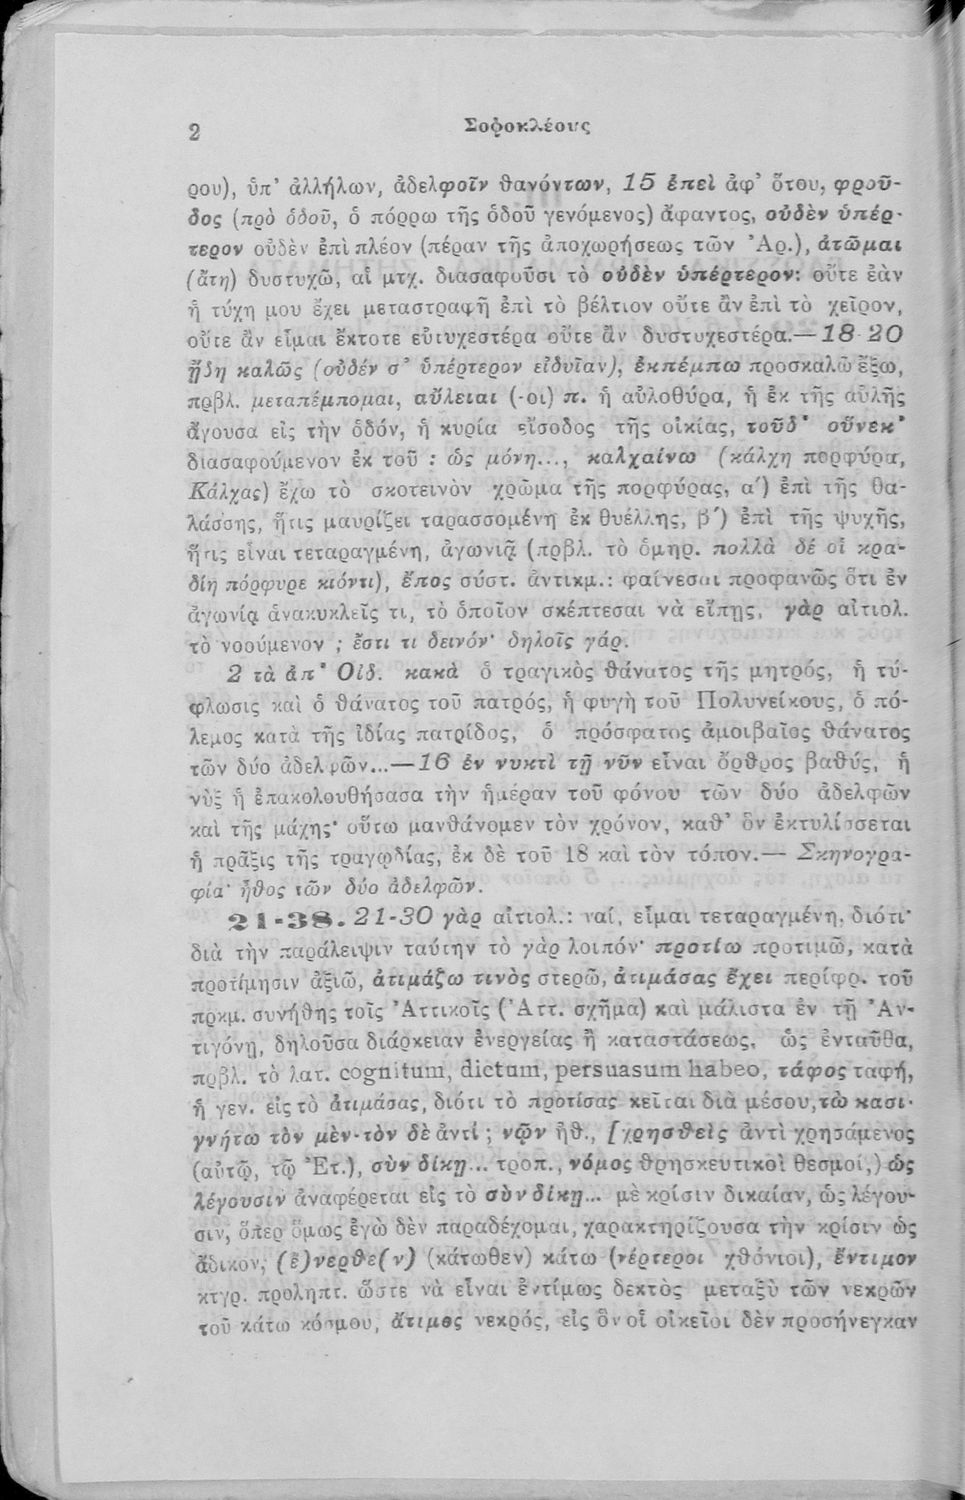 2
Σοφοκλέους
ρου), ὑπ' ἀλλήλων, ἀδελφοῖν θανόντων, 15 ἐπεὶ ἀφ' ὅτου, φροῦ-
δος (πρὸ ὁδοῦ, ὁ πόρρω τῆς ὁδοῦ γενόμενος) ἄφαντος, οὐδὲν ὑπέρ-
τερον οὐδὲν ἐπὶ πλέον (πέραν τῆς ἀποχωρήσεως τῶν Ἀρ.), ἀτῶμαι
(ἄτη) δυστυχῶ, αἱ μτχ. διασαφοῦσι τὸ οὐδὲν ὑπέρτερον: οὔτε ἐὰν
ἡ τύχη μου ἔχει μεταστραφῆ ἐπὶ τὸ βέλτιον οὔτε ἂν ἐπὶ τὸ χεῖρον,
οὔτε ἂν εἶμαι ἔκτοτε εὐτυχεστέρα οὔτε ἂν δυστυχεστέρα.—18-20
ᾔδη καλῶς (οὐδέν σ' ὑπέρτερον εἰδυῖαν), ἐκπέμπω προσκαλῶ ἔξω,
πρβλ. μεταπέμπομαι, αὔλειαι (-οι) π. ἡ αὐλοθύρα, ἡ ἐκ τῆς αὐλῆς
ἄγουσα εἰς τὴν ὁδόν, ἡ κυρία εἴσοδος τῆς οἰκίας, τοῦδ' οὕνεκ'
διασαφούμενον ἐκ τοῦ : ὡς μόνη..., καλχαίνω (κάλχη πορφύρα,
Κάλχας) ἔχω τὸ σκοτεινὸν χρῶμα τῆς πορφύρας, α') ἐπὶ τῆς θα-
λάσσης, ἥτις μαυρίζει ταρασσομένη ἐκ θυέλλης, β') ἐπὶ τῆς ψυχῆς,
ἥτις εἶναι τεταραγμένη, ἀγωνιᾷ (πρβλ. τὸ ὁμηρ. πολλὰ δέ οἱ κρα-
δίη πόρφυρε κιόντι), ἔπος σύστ. ἀντικμ.: φαίνεσαι προφανῶς ὅτι ἐν
ἀγωνίᾳ ἀνακυκλεῖς τι, τὸ ὁποῖον σκέπτεσαι νὰ εἴπῃς, γὰρ αἰτιολ.
τὸ νοούμενον ; ἔστι τι δεινόν· δηλοῖς γάρ.
2 τὰ ἀπ' Οἰδ. κακὰ ὁ τραγικὸς θάνατος τῆς μητρός, ἡ τύ-
φλωσις καὶ ὁ θάνατος τοῦ πατρός, ἡ φυγὴ τοῦ Πολυνείκους, ὁ πό-
λεμος κατὰ τῆς ἰδίας πατρίδος, ὁ πρόσφατος ἀμοιβαῖος θάνατος
τῶν δύο ἀδελφῶν...—16 ἐν νυκτὶ τῇ νῦν εἶναι ὄρθρος βαθύς, ἡ
νὺξ ἡ ἐπακολουθήσασα τὴν ἡμέραν τοῦ φόνου τῶν δύο ἀδελφῶν
καὶ τῆς μάχης· οὕτω μανθάνομεν τὸν χρόνον, καθ' ὃν ἐκτυλίσσεται
ἡ πρᾶξις τῆς τραγῳδίας, ἐκ δὲ τοῦ 18 καὶ τὸν τόπον.— Σκηνογρα-
φία· ἦθος τῶν δύο ἀδελφῶν.
21-38. 21-30 γὰρ αἰτιολ.: ναί, εἶμαι τεταραγμένη, διότι·
διὰ τὴν παράλειψιν ταύτην τὸ γὰρ λοιπόν· προτίω προτιμῶ, κατὰ
προτίμησιν ἀξιῶ, ἀτιμάζω τινὸς στερῶ, ἀτιμάσας ἔχει περίφρ. τοῦ
πρκμ. συνήθης τοῖς Ἀττικοῖς (Ἀττ. σχῆμα) καὶ μάλιστα ἐν τῇ Ἀν-
τιγόνῃ, δηλοῦσα διάρκειαν ἐνεργείας ἢ καταστάσεως, ὡς ἐνταῦθα,
πρβλ. τὸ λατ. cognitum, dictum, persuasum habeo, τάφος ταφή,
ἡ γεν. εἰς τὸ ἀτιμάσας, διότι τὸ προτίσας κεῖται διὰ μέσου, τὼ κασι-
γνήτω τὸν μὲν-τὸν δὲ ἀντί ; νῷν ἠθ., [χρησθεὶς ἀντὶ χρησάμενος
(αὐτῷ, τῷ Ἐτ.), σὺν δίκῃ... τροπ., νόμος θρησκευτικοὶ θεσμοί,) ὡς
λέγουσιν ἀναφέρεται εἰς τὸ σὺν δίκῃ... μὲ κρίσιν δικαίαν, ὡς λέγου-
σιν, ὅπερ ὅμως ἐγὼ δὲν παραδέχομαι, χαρακτηρίζουσα τὴν κρίσιν ὡς
ἄδικον, (ἔ)νερθε(ν) (κάτωθεν) κάτω (νέρτεροι χθόνιοι), ἔντιμον
κτγρ. προληπτ. ὥστε νὰ εἶναι ἐντίμως δεκτὸς μεταξὺ τῶν νεκρῶν
τοῦ κάτω κόσμου, ἄτιμος νεκρός, εἰς ὃν οἱ οἰκεῖοι δὲν προσήνεγκαν